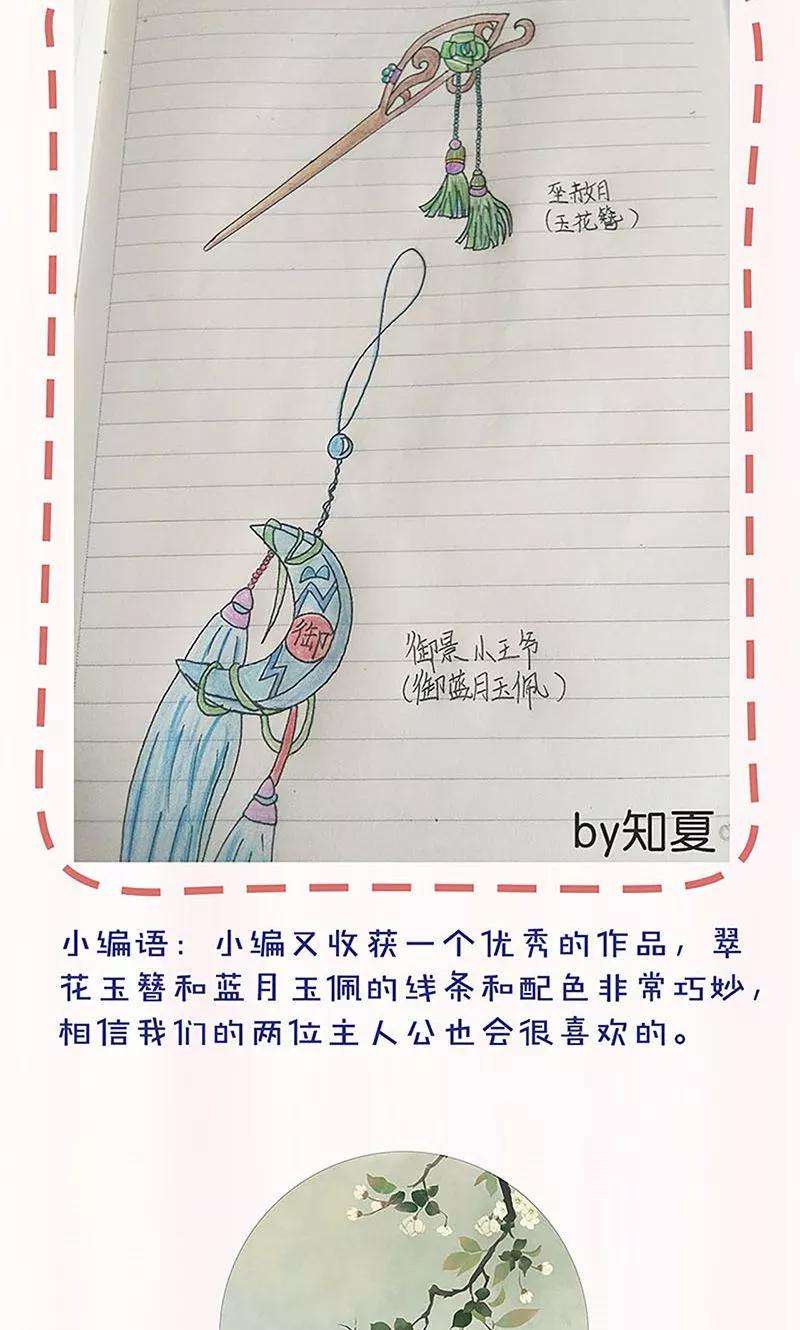 坐赦月
(玉花簪)
御
御景小王爷
(御蓝月玉佩)
by知夏
小编语：小编又收获一个优秀的作品，翠
花玉簪和蓝月玉佩的线条和配色非常巧妙，
相信我们的两位主人公也会很喜欢的。